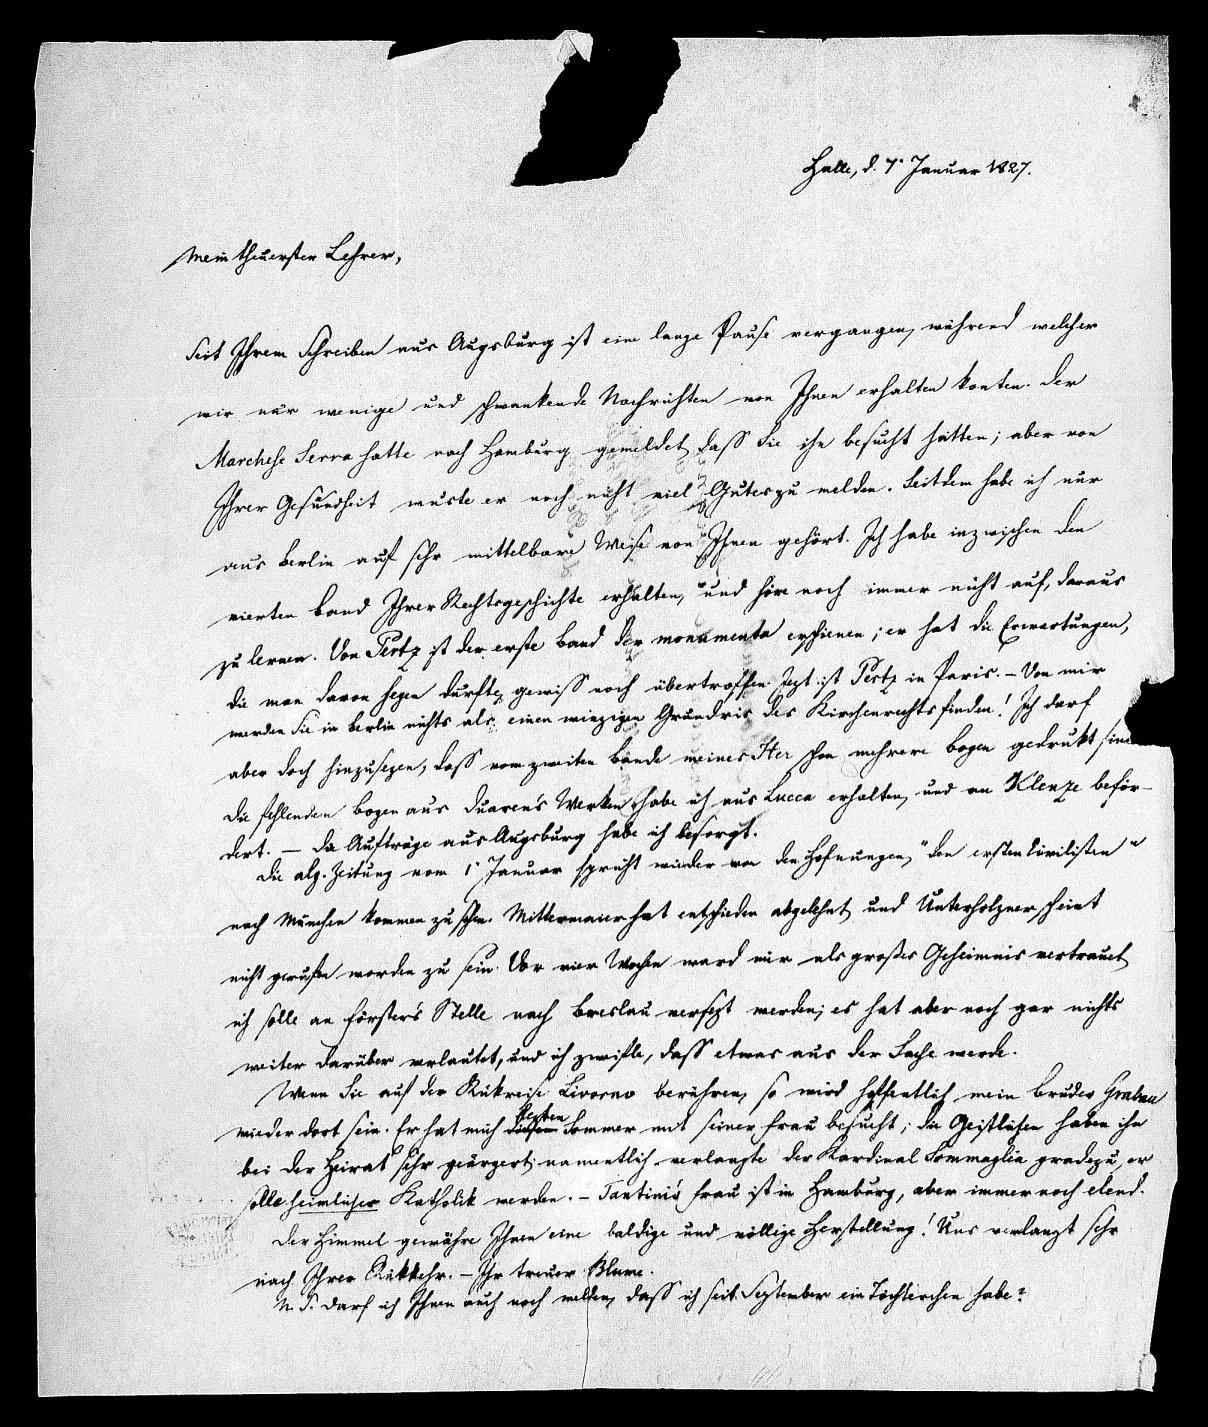 Halle, d. 7. Januar 1827.
Mein theuerster Lehrer,
Seit Ihrem Schreiben aus Augsburg ist eine lange Pause vergangen, während welcher
wir nur wenige und schwankende Nachrichten von Ihnen erhalten konten. Der
Marchese Serra hatte nach Hamburg gemeldet, daß Sie ihn besucht hätten; aber von
Ihrer Gesundheit wuste er noch nicht viel Gutes zu melden. Seitdem habe ich nur
aus Berlin auf sehr mittelbare Weise von Ihnen gehört. Ich habe inzwischen den
vierten Band Ihrer Rechtsgeschichte erhalten, und höre noch immer nicht auf, daraus
zu lernen. Von Pertz ist der erste Band der monumenta erschienen; er hat die Erwartungen,
die man davon hegen durfte, gewiß noch übertroffen. Jezt ist Pertz in Paris. – Von mir
werden Sie in Berlin nichts als einen winzigen Grundris des Kirchenrechts finden! Ich darf
aber doch hinzusezen, daß vom zweiten Bande meines Iter schon mehrere Bogen gedrukt sind
Die fehlenden Bogen aus Duaren's Werken habe ich aus Lucca erhalten, und an Klenze beför-
dert. – Die Aufträge aus Augsburg habe ich besorgt.
Die alg. Zeitung vom 1. Januar spricht wieder von den Hofnungen, "den ersten Civilisten"
nach München kommen zu sehen. Mittermaier hat entschieden abgelehnt, und Unterholzner scheint
nicht gerufen worden zu sein. Vor vier Wochen ward mir als großes Geheimnis vertrauet,
ich solle an Förster's Stelle nach Breslau versezt werden; es hat aber noch gar nichts
weiter darüber verlautet, und ich zweifle, daß etwas aus der Sache werde.
Wenn Sie auf der Rükreise Livorno berühren, so wird hoffentlich mein Bruder Grabau
wieder dort sein. Er hat mich lezten Sommer mit seiner Frau besucht; die Geistlichen haben ihn
bei der Heirat sehr geärgert; namentlich verlangte der Kardinal Sommaglia gradezu, er
solle heimlicher Katholik werden. – Tantini's Frau ist in Hamburg, aber immer noch elend.
Der Himmel gewähre Ihnen eine baldige und völlige Herstellung! Uns verlangt sehr
nach Ihrer Rükkehr. – Ihr treuer Blume.
N. S. Darf ich Ihnen auch noch melden, daß ich seit September ein Töchterchen habe?